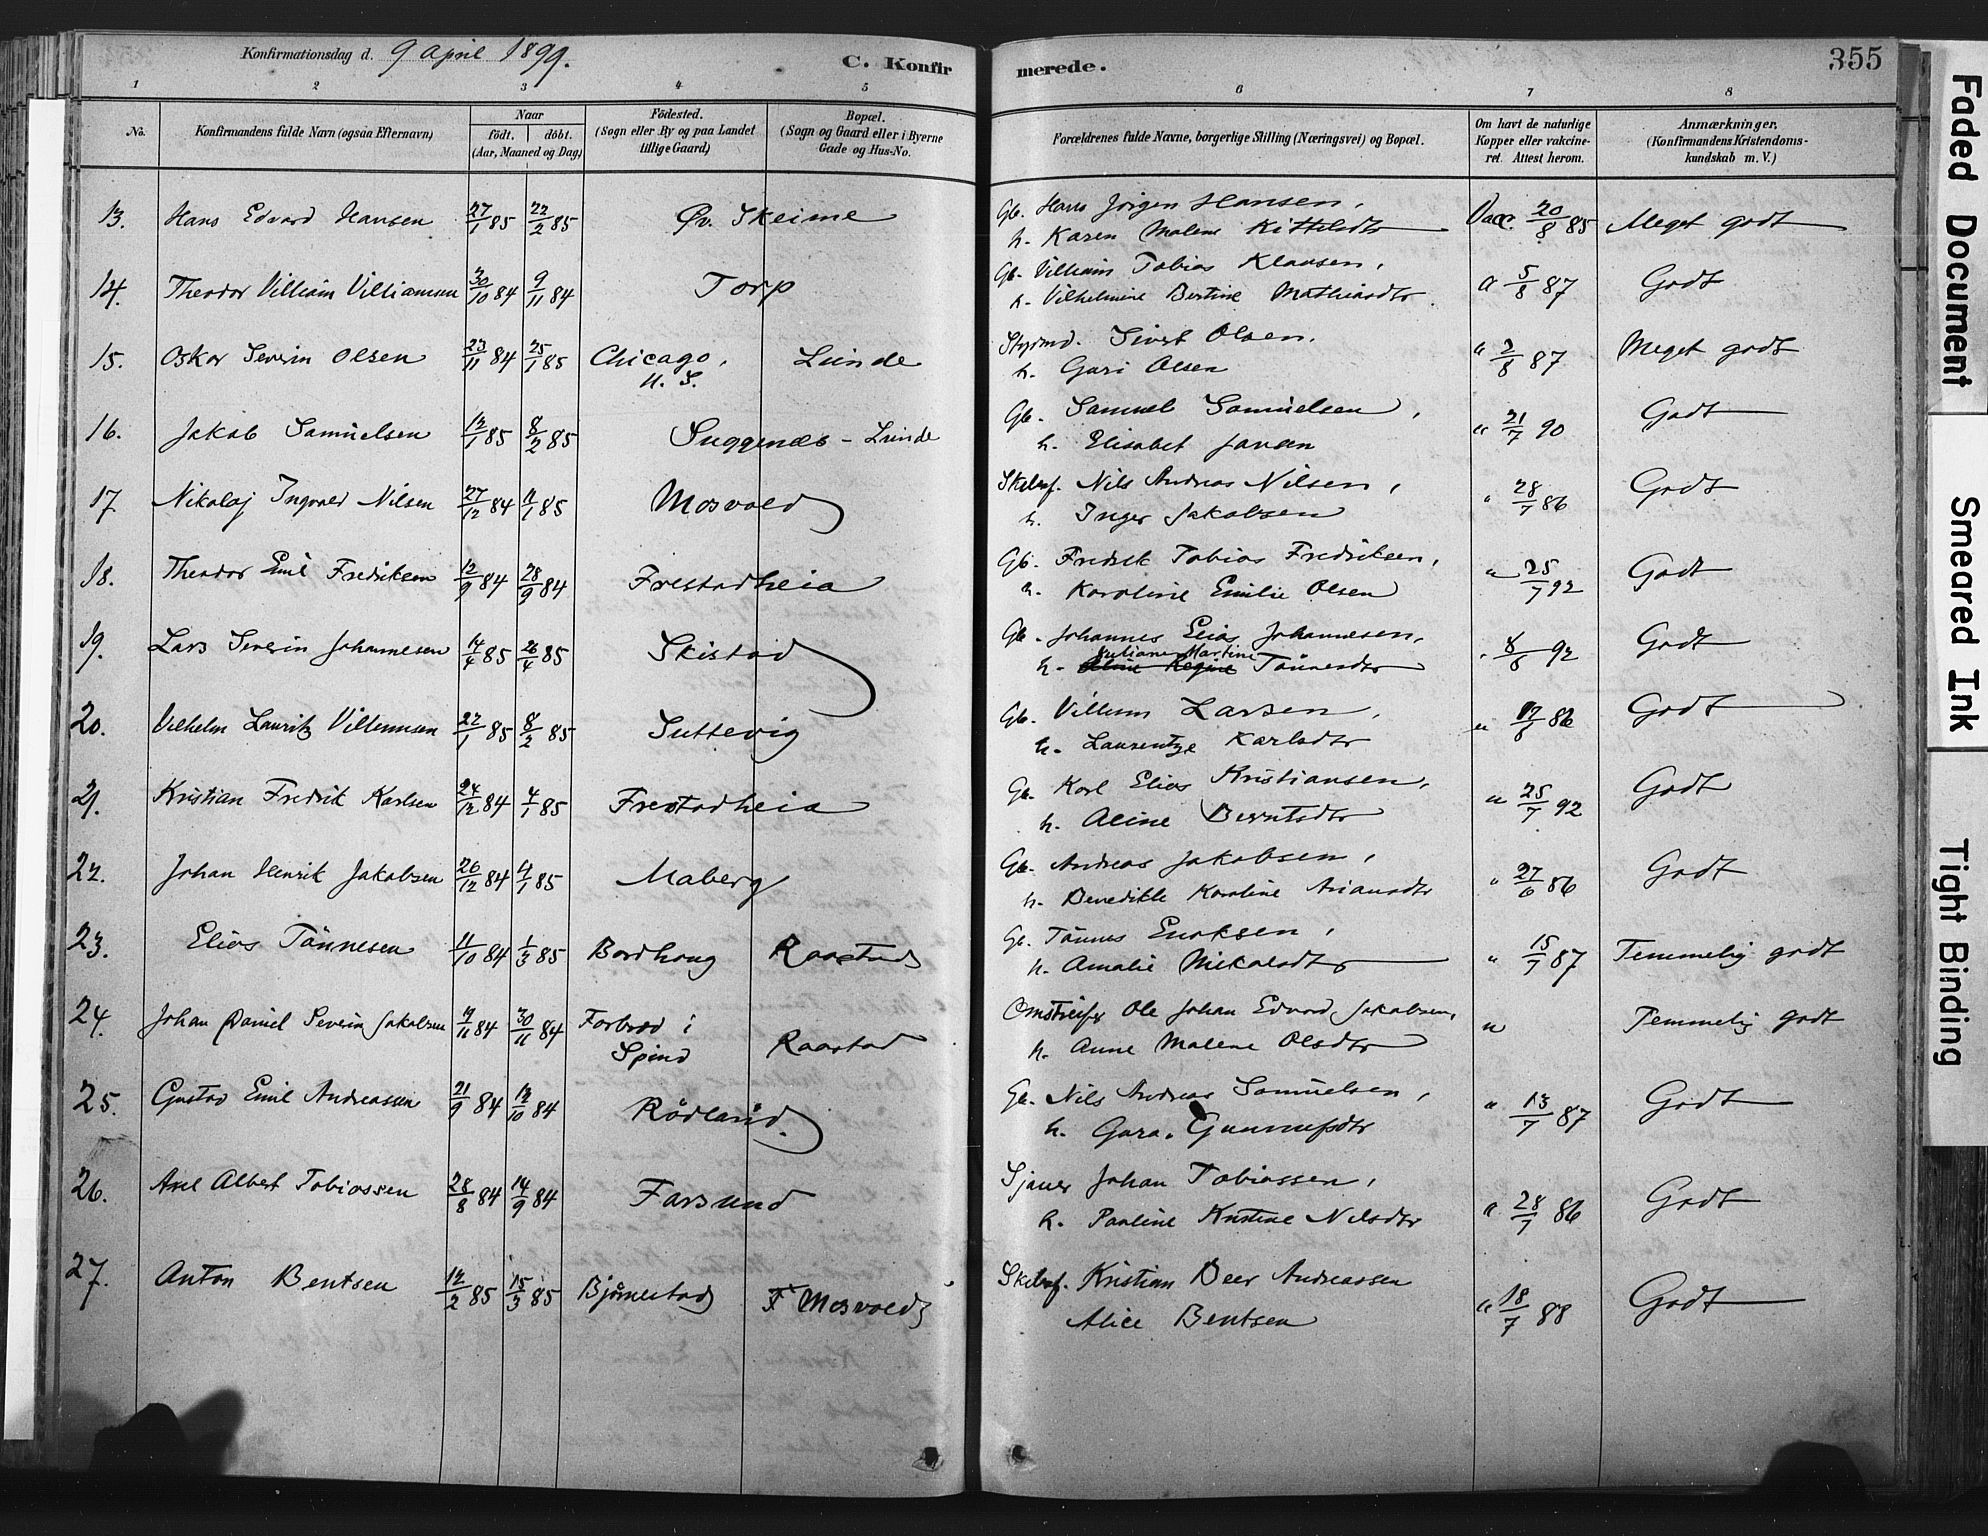 Konfirmationsdag d. 9 April 1899.
C. Konfir
merede.
355
1 2 3 4 5 6 7 8
No.
Konfirmandens fulde Navn (ogsaa Efternavn)
Naar
födt. | döbt.
(Aar, Maaned og Dag)
Födested.
(Sogn eller By og paa Landet
tillige Gaard)
Bopæl.
(Sogn og Gaard eller i Byerne
Gade og Hus-No.
Forældrenes fulde Navne, borgerlige Stilling (Næringsvei) og Bopæl.
Om havt de naturlige
Kopper eller vakcine-
ret. Attest herom.
Anmærkninger.
(Konfirmandens Kristendoms-
kundskab m. V.)
13. Hans Edvard Hansen 27/1 85 22/2 85 Øv. Skeime Gb. Hans Jörgen Hansen, Vacc. 20/8 85 Meget godt
h. Karen Malene Kittelsdtr
14. Theodor Villiam Villiamsen 30/10 84 9/11 84 Torp Gb. Villiam Tobias Klausen, " 5/8 87 Godt
h. Vilhelmine Bertine Mathiasdtr.
15. Oskar Severin Olsen 23/11 84 25/1 85 Chicago, Lunde Styrmd. Sivert Olsen, " 2/8 87 Meget godt
N. S. h. Guri Olsen
16. Jakob Samuelsen 12/1 85 8/2 85 Suggenæs - Lunde Gb. Samuel Samuelsen, " 21/7 90 Godt
h. Elisabet Jansen
17. Nikolaj Ingvald Nilsen 27/12 84 11/1 85 Mosvold Skibsf. Nils Andreas Nilsen, " 28/7 86 Godt
h. Inger Jakobsen
18. Theodor Emil Fredriksen 12/9 84 28/9 84 Frestadheia Gb. Fredrik Tobias Fredriksen, " 25/7 92 Godt
h. Karoline Emilie Olsen
19. Lars Severin Johannesen 14/4 85 26/4 85 Skistad Gb. Johannes Elias Johannesen, " 8/8 92 Godt
Juliane Martine
h. Aline Regine Tönnesdtr
20. Vilhelm Lauritz Villumsen 22/1 85 8/2 85 Suttevig Gb. Villum Larsen, " 86 Godt
h. Laurentze Karlsdtr
21. Kristian Fredrik Karlsen 24/12 84 4/1 85 Frestadheia Gb. Karl Elias Kristiansen, " 25/7 92 Godt
h. Aline Berntsdtr
22. Johan Henrik Jakobsen 26/12 84 4/1 85 Maberg Gb. Andreas Jakobsen, " 27/6 86 Godt
h. Benedikte Karoline Ariansdtr
23. Elias Tönnesen 11/10 84 1/3 85 Bordhaug Raastad Gb. Tönnes Enoksen, " 15/7 87 Temmelig godt
h. Amalie Mikalsdtr
24. Johan Daniel Severin Jakobsen 4/11 84 30/11 84 Forbrod i Ole Johan Edvard Jakobsen, " Temmelig godt
Spind Raastad h. Anne Malene Olsdtr
25. Gustav Emil Andreassen 21/9 84 12/10 84 Rödland. Gb. Nils Andreas Samuelsen, " 13/7 87 Godt
h. Gura. Gunnufsdtr
26. Axel Albert Tobiassen 28/8 84 14/9 84 Farsund Sjauer Johan Tobiassen, " 28/7 86 Godt
h. Pauline Kristine Nilsdtr
27. Anton Bentsen 12/2 85 15/3 85 Björnestad F Mosvold Skibsf. Kristian Beer Andreassen " 18/7 88 Godt
Alice Bentsen
Faded Document
Smeared Ink
Tight Binding